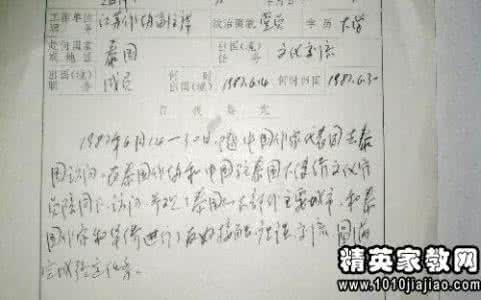 工作单位 江苏作协副主席 政治面貌 党员 学历 大学
职务
赴何国家 泰国 出国(境) 文化交流
或地区 任务
出国(境) 成员 何时 1987.6.14 何时回国 1987.6.30
职务 出国(境)
自我鉴定
1987年6月14—30日,随中国作家代表团去泰
国访问。在泰国作协和中国驻泰国大使馆文化官
员陪同下,访问 了泰国 大部分主要城市,和泰
国作家和华侨进行了友好接触 座谈交流,圆满
完成 任务。
精英家教网
www.1010jiajiao.com